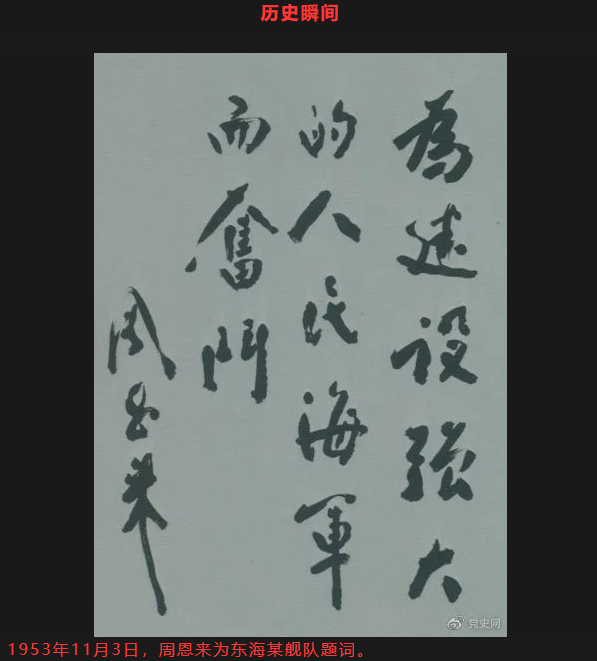 历史瞬间
為建设强大
的人民海軍
而奮鬥
周恩来
党史网
1953年11月3日，周恩来为东海某舰队题词。